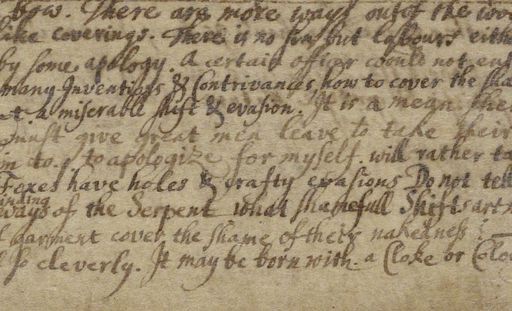 how. There are more ways out of the woo
like coverings. There is no sin but labours eithe
by some apology. A certain officer would not
many Inventions & Contrivances, how to cover the sha
a miserable shift & evasion. It is a mean
must give great men leave to take their
to. to apologize for myself. will rather ta
Foxes have holes & crafty evasions Do not tell
winding
ways of the Serpent what shamefull Shifts art
garment cover the shame of their nakedness
so cleverly. It may be born with. a Cloke or Colo